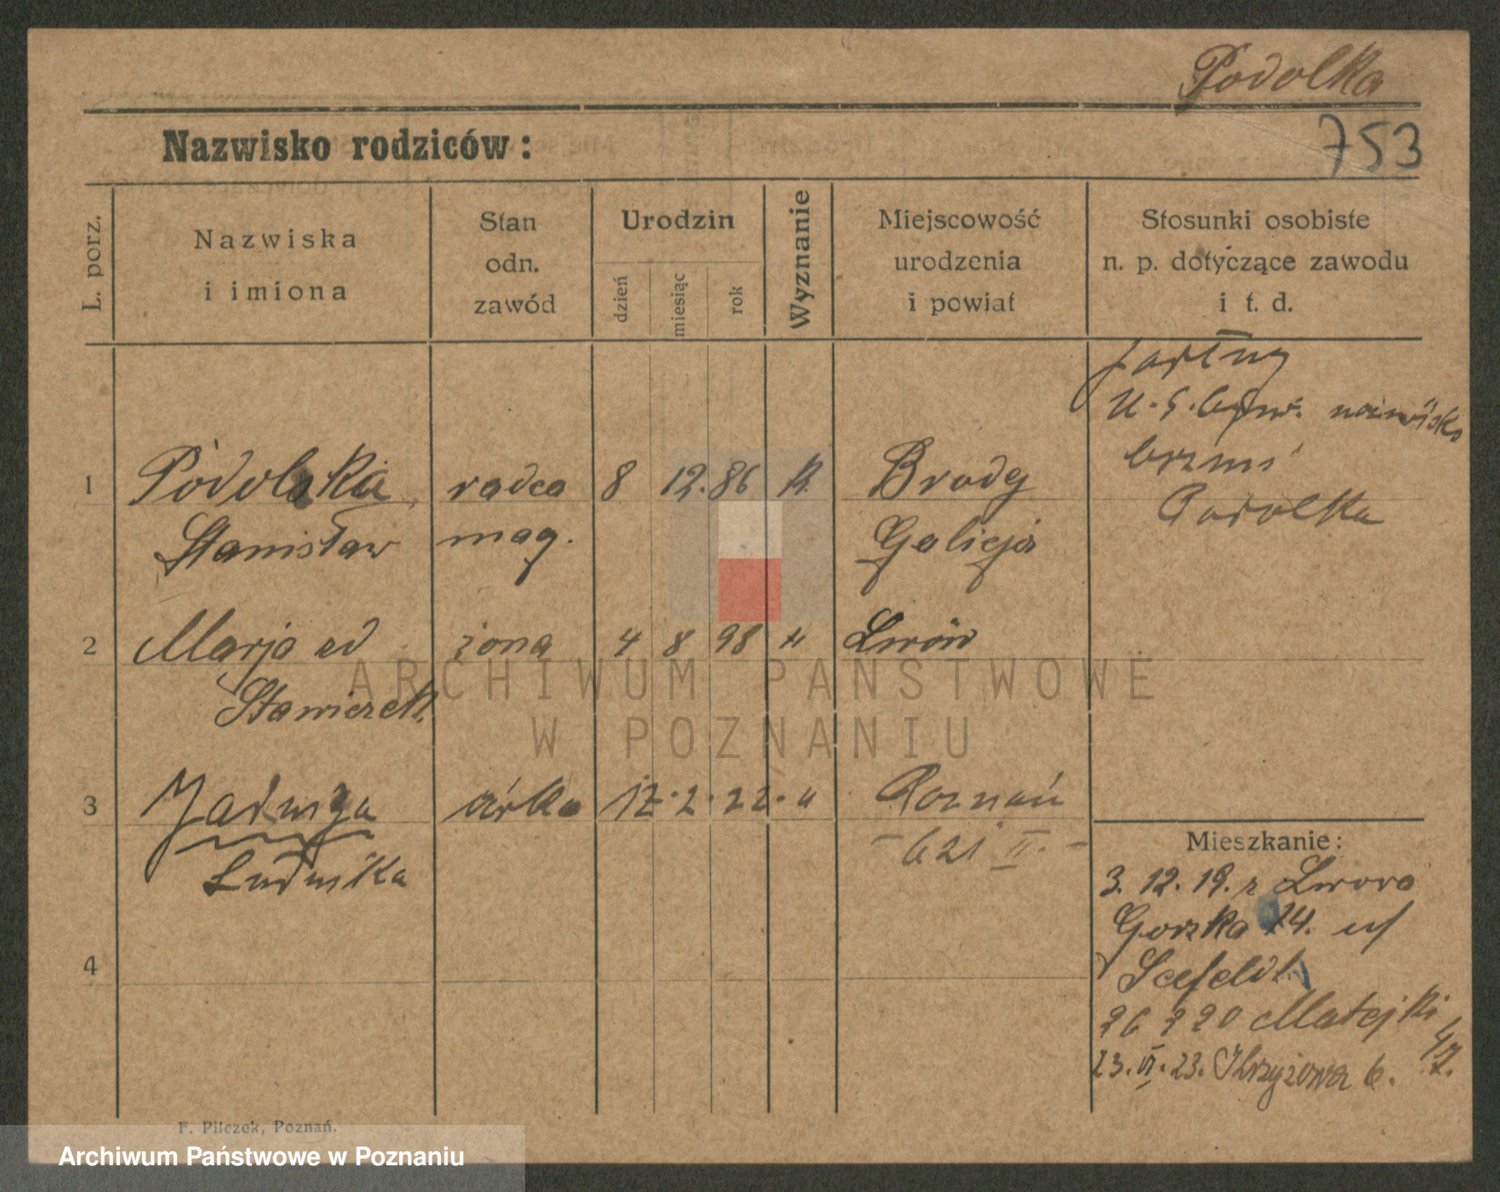 Podolka
753
Nazwisko rodziców:
L. porz.
Nazwiska
i imiona
Stan
odn.
zawód
Urodzin
dzień
miesiąc
rok
Wyznanie
Miejscowość
urodzenia
i powiat
Stosunki osobiste
n. p. dotyczące zawodu
i t. d.
nazwisko
brzmi
Podolka
1 Podolska radca 8 12.86 k. Brody
Stanisław mag. Galicja
2 Marja żona 4 8 98 " Lwów
3 Jadwiga córka 12.2.22. " Poznań
Ludwika – 621 II. –
4
Mieszkanie:
3. 12. 19. z Lwowa
Gorzka 14.
26 2 20 Matejki
23. VI. 23. Krzyżowa 6.
F. Pilczek, Poznań.
ARCHIWUM PAŃSTWOWE
W POZNANIU
Archiwum Państwowe w Poznaniu